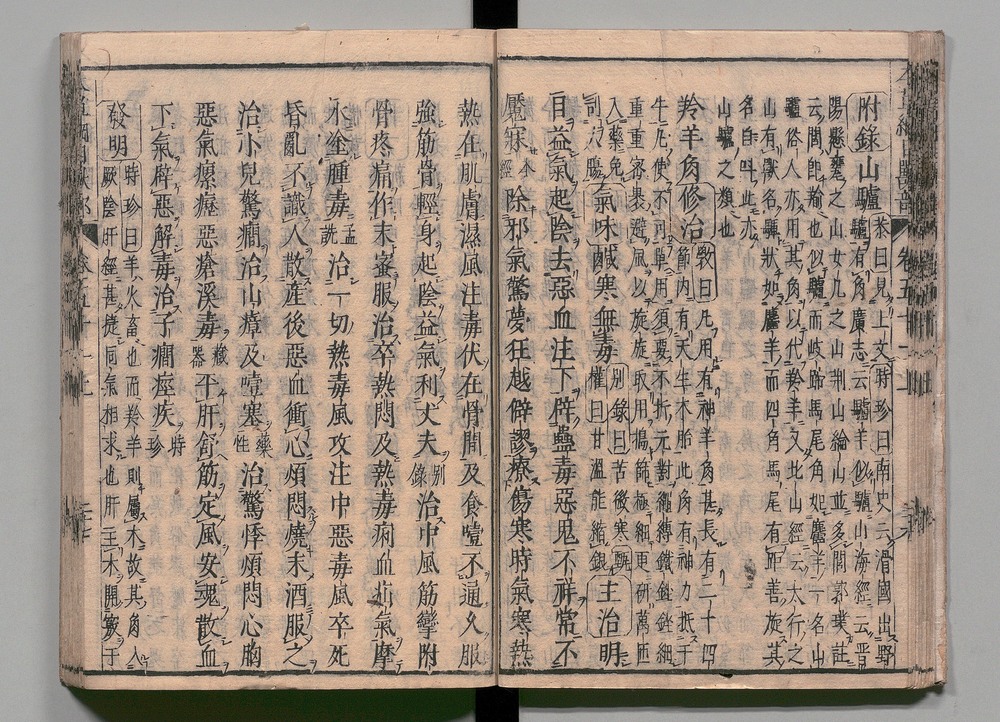 附錄山驢恭曰見上文時珍曰南史云滑國出野
驢有角廣志云驢羊似驢山海經云晉
陽懸甕之山女几之山荆山綸山並多閭郭璞註
云閭即羭也似驢而岐蹄馬尾角如麢羊一名山
驢俗人亦用其角以代羚羊又北山經云太行之
山有獸名䮝狀如麢羊而四角馬尾有距善旋其
名自叫此亦
山驢之類也
羚羊角修治斆曰凡用有神羊角甚長有二十四
節內有天生木胎此角有神力抵千
牛凡使不可單用須要不折元對繩縛鐵銼銼細
重重密裹避風以旋旋取用搗篩極細更研萬匝
入藥免刮人腸氣味鹹寒無毒別錄曰苦微寒
權曰甘溫能縮銀主治明
目益氣起陰去惡血注下辟蠱毒惡鬼不祥常不
魘寐本經除邪氣驚夢狂越僻謬療傷寒時氣寒熱
熱在肌膚濕風注毒伏在骨間及食噎不通久服
強筋骨輕身起陰益氣利丈夫別錄治中風筋攣附
骨疼痛作末蜜服治卒熱悶及熱毒痢血疝氣摩
水塗腫毒孟詵治一切熱毒風攻注中惡毒風卒死
昏亂不識人散産後惡血衝心煩悶燒末酒服之
治小兒驚癇治山瘴及噎塞藥性治驚悸煩悶心胸
惡氣瘰癧惡瘡溪毒藏器平肝舒筋定風安魂散血
下氣辟惡解毒治子癇痙疾時珍
發明時珍曰羊火畜也而羚羊則屬木故其角入
厥陰肝經甚捷同氣相求也肝主木開竅于